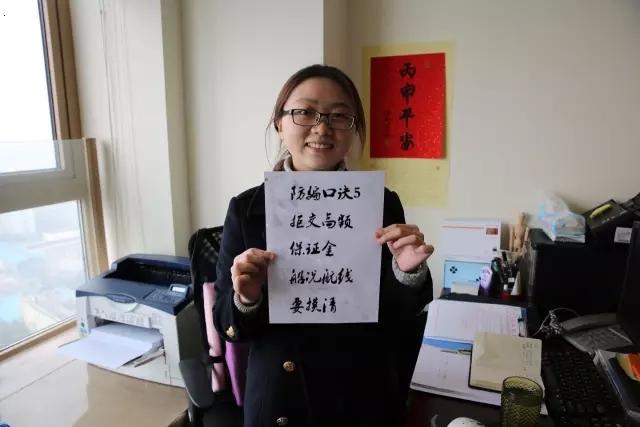 丙申平安
防骗口诀5
拒交高额
保证金
船况航线
要摸清